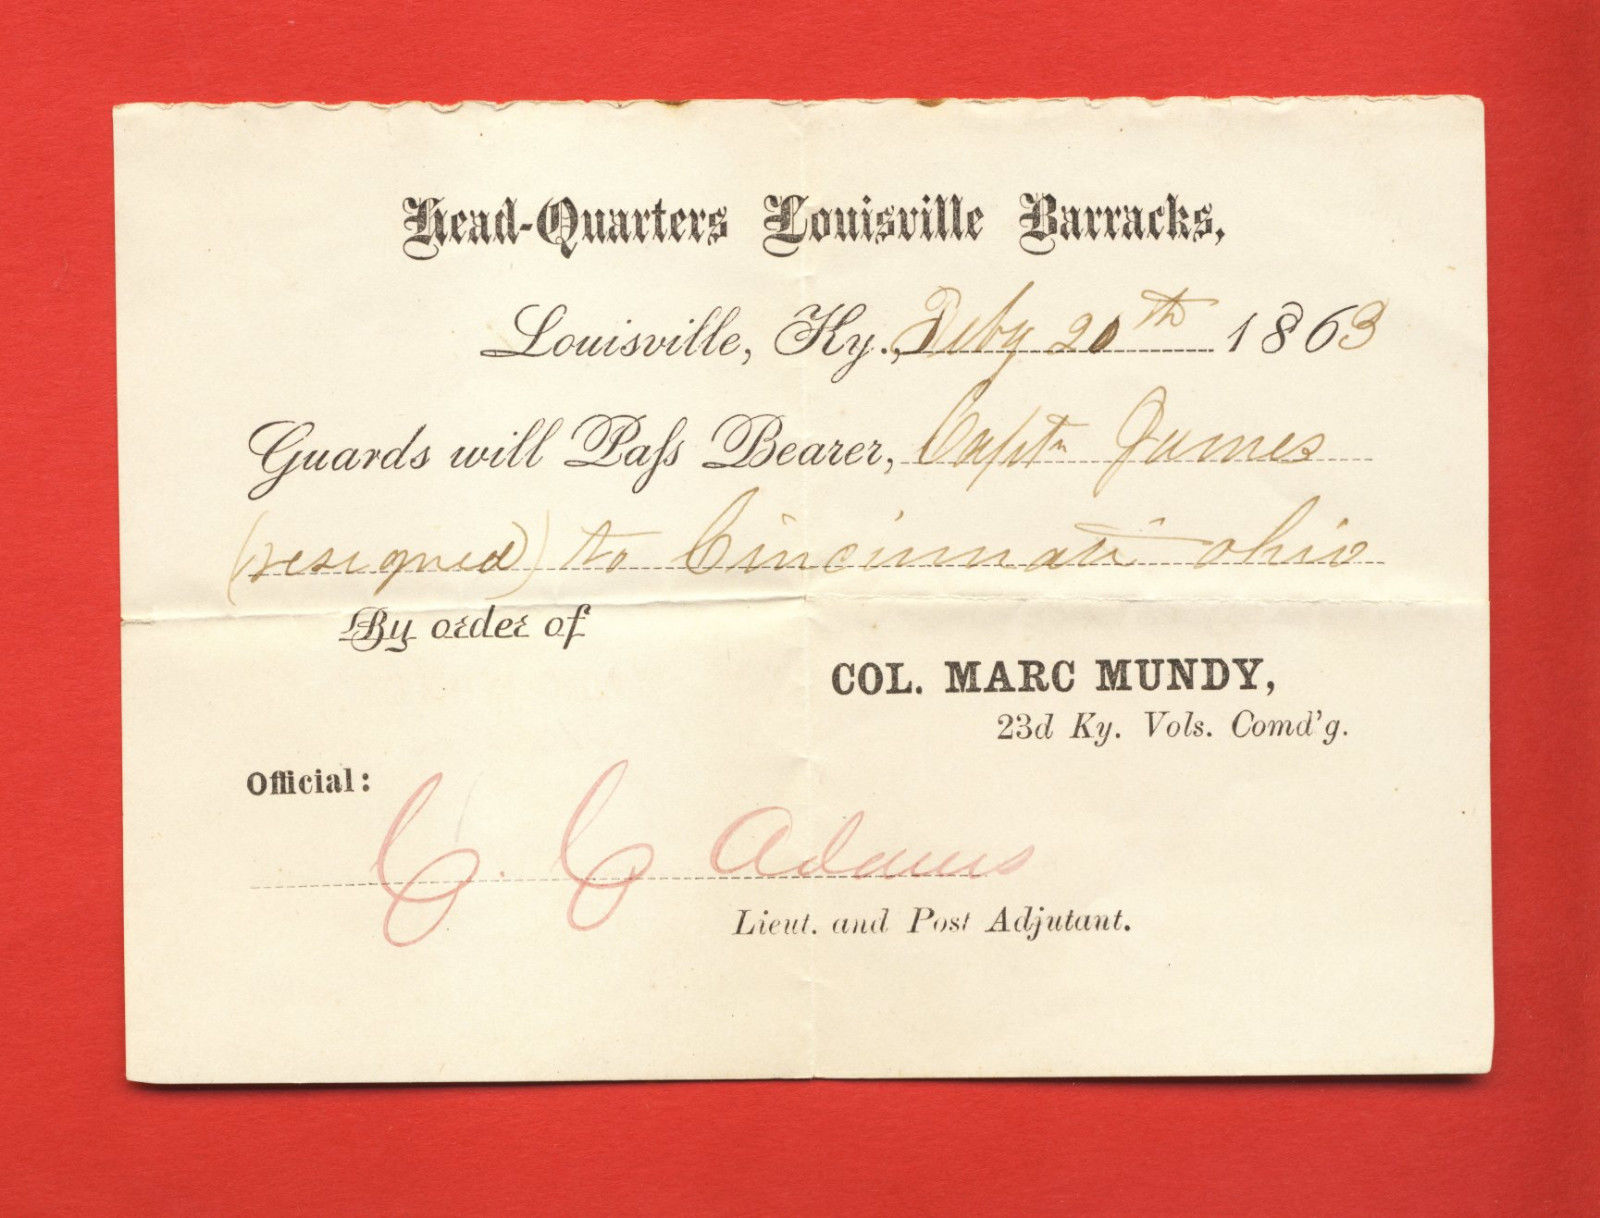 Head-Quarters Louisville Barracks,
Louisville, Ky., Feby 20th 1863
Guards will Paſs Bearer, Captn James
(resigned) to Cincinnati ohio
By order of
COL. MARC MUNDY,
23d Ky. Vols. Comd'g.
Official:
C. C Adams
Lieut. and Post Adjutant.